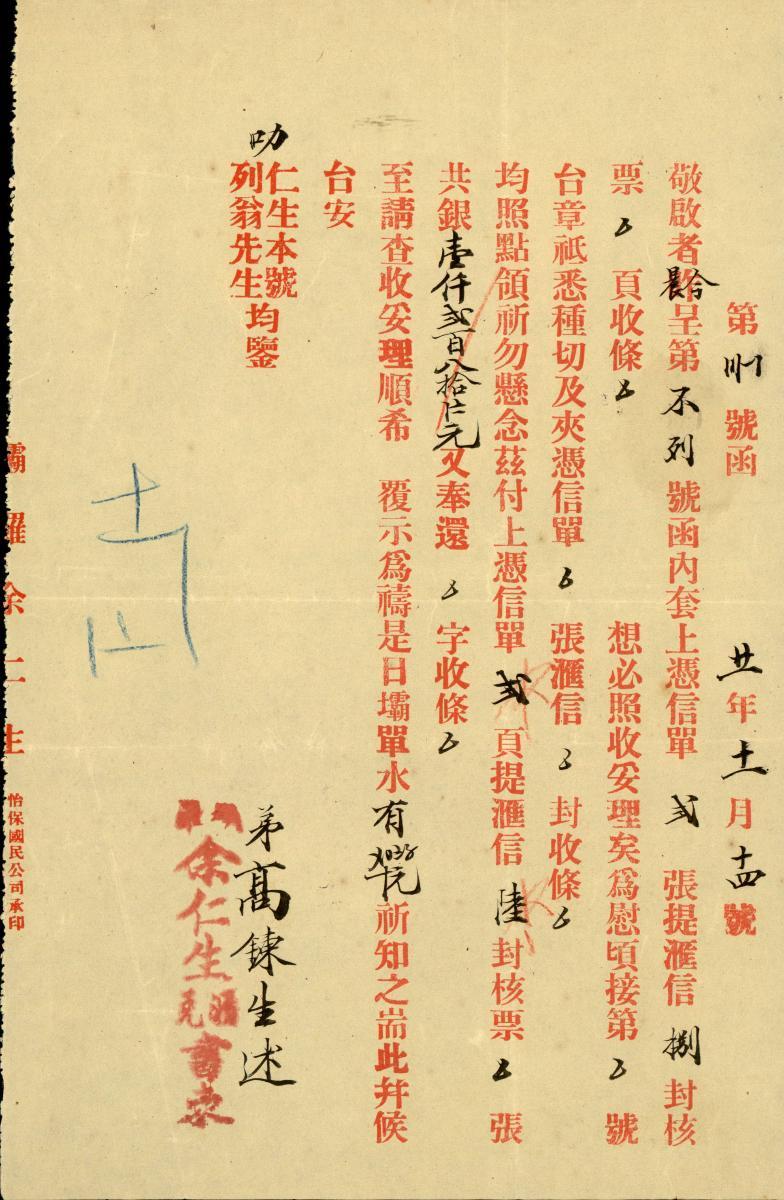 第 號函 廿年十一月十四號
敬啟者昨呈第不列號函內套上憑信單弍張提滙信捌封核
票 頁收條 想必照收妥理矣為慰頃接第 號
台章祇悉種切及夾憑信單 張滙信 封收條
均照點領祈勿懸念茲付上憑信單弍頁提滙信陸封核票 張
共銀壹仟弍百八拾仁元又奉還 字收條
至請查收妥理順希 覆示為禱是日壩單水有 祈知之耑此幷候
台安
叻仁生本號
列翁先生均鑒
弟高錬生述
余仁生 書柬
壩羅余仁生 怡保國民公司承印